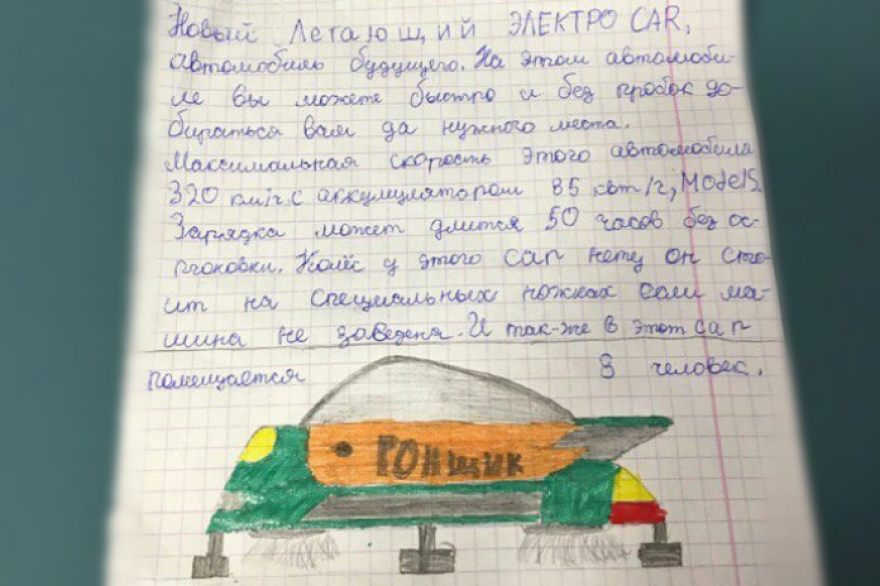 Новый Летающий ЭЛЕКТРО CAR,
автомобиль будущего. На этом автомоби-
ле вы можете быстро и без пробок до-
бираться вам да нужного места.
Максимальная скорость этого автомобиля
320 км/ч. с аккумулятором 85 квт/г; ModelS.
Зарядка может длится 50 часов без ос-
тоновки. Колёс у этого car нету он сто-
ит на специальных ножках если ма-
шина не заведеня. И так-же в этот car
помещается 8 человек.
РОНЩИК